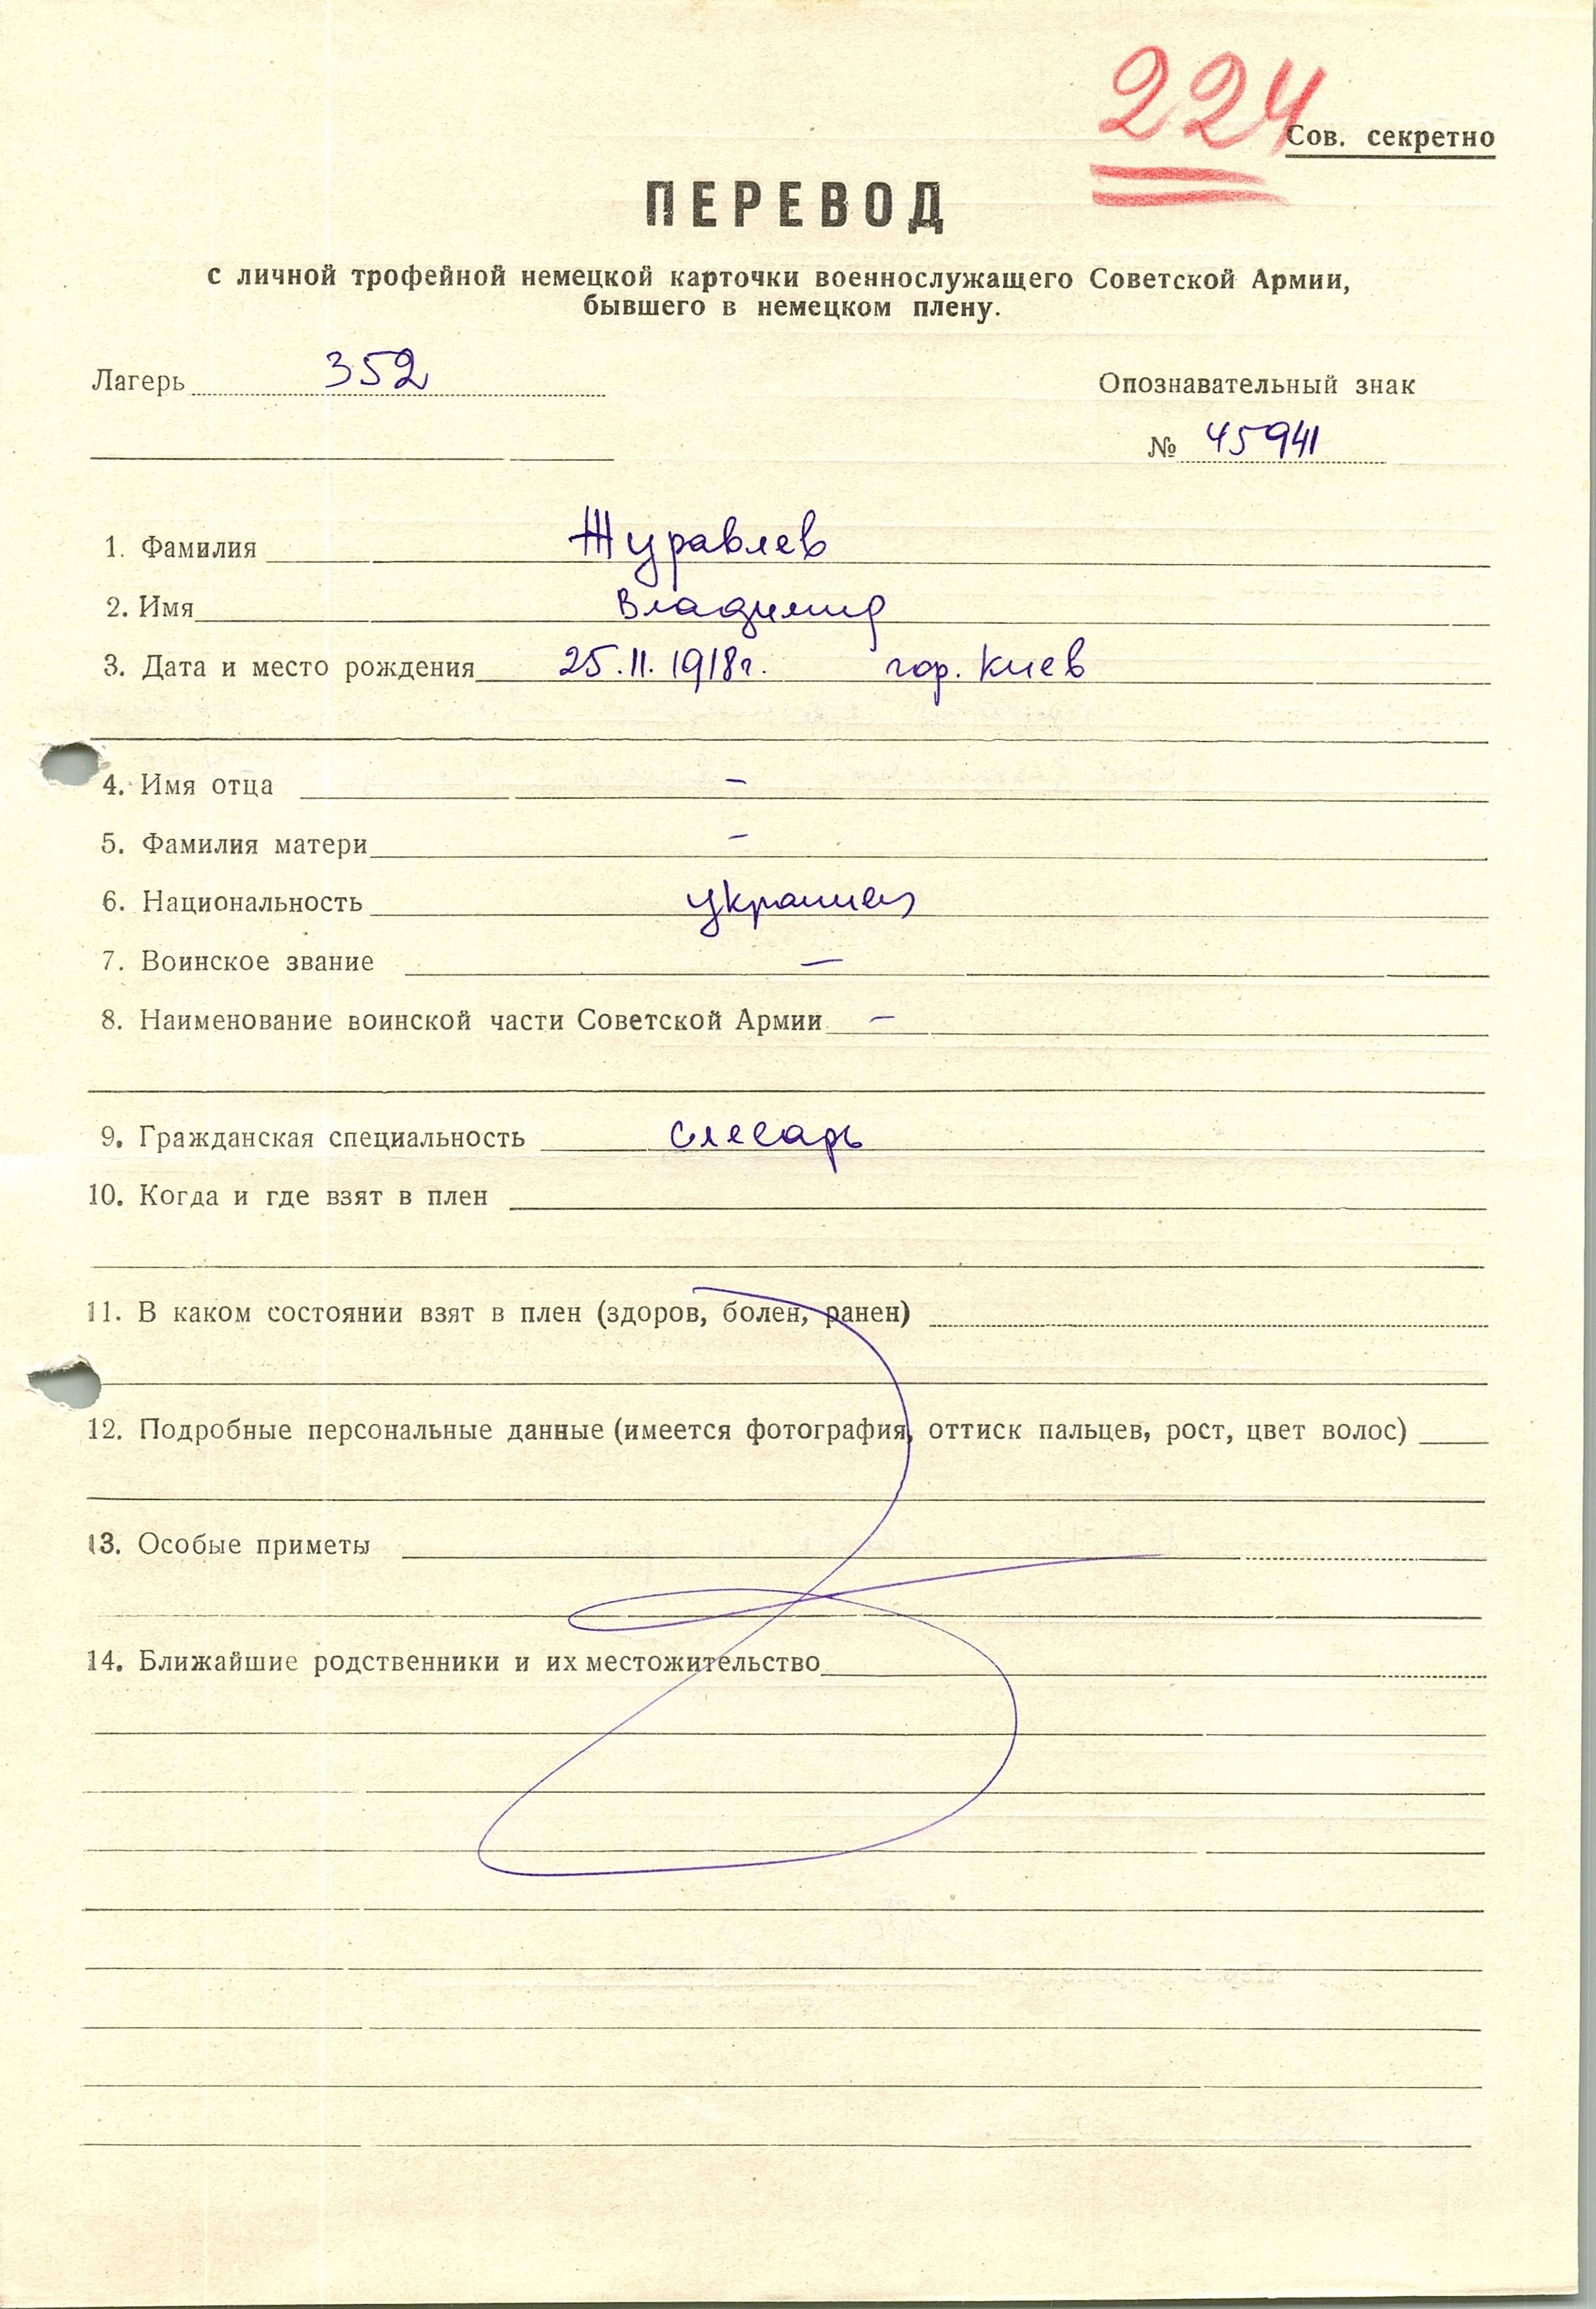 224
Сов. секретно
ПЕРЕВОД
с личной трофейной немецкой карточки военнослужащего Советской Армии,
бывшего в немецком плену.
Лагерь 352
Опознавательный знак
№ 45941
1. Фамилия Журавлев
2. Имя Владимир
3. Дата и место рождения 25.11.1918г. гор. Киев
4. Имя отца –
5. Фамилия матери –
6. Национальность украинец
7. Воинское звание –
8. Наименование воинской части Советской Армии –
9. Гражданская специальность слесарь
10. Когда и где взят в плен
11. В каком состоянии взят в плен (здоров, болен, ранен)
12. Подробные персональные данные (имеется фотография, оттиск пальцев, рост, цвет волос)
13. Особые приметы
14. Ближайшие родственники и их местожительство